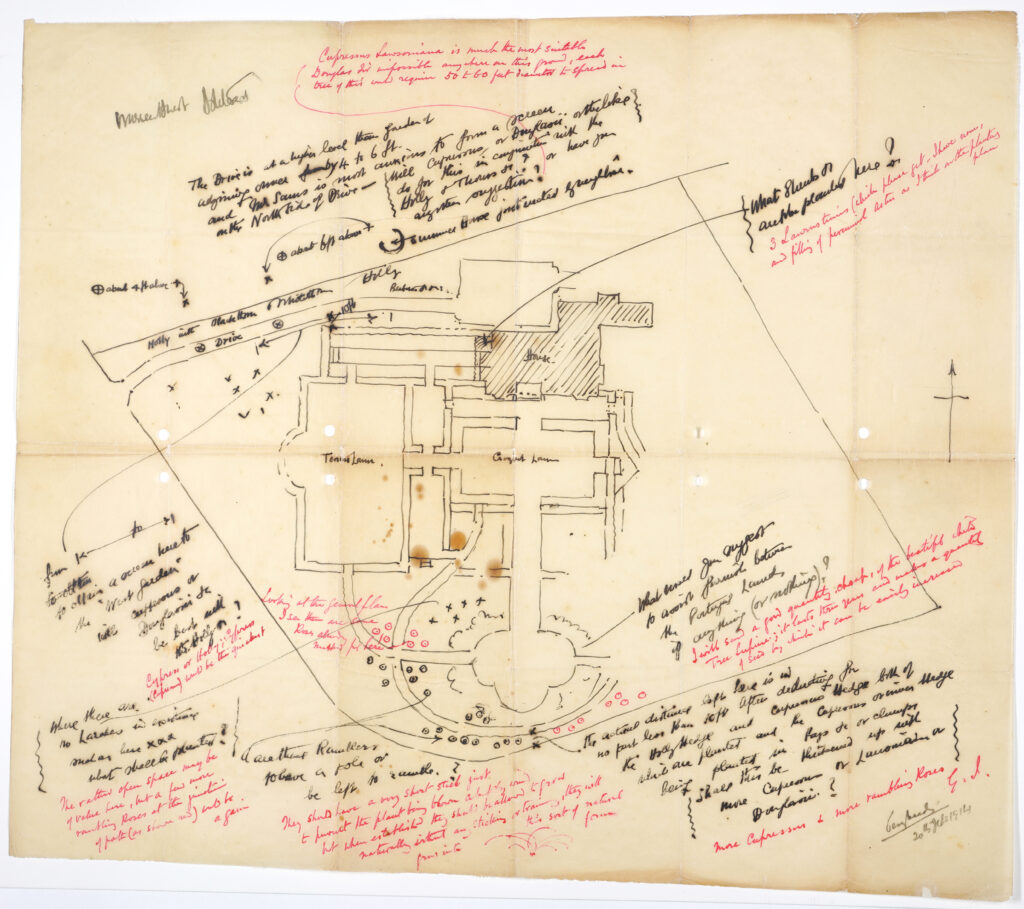 Cupressus Lawsoniana is much the most suitable
Douglas Fir impossible anywhere on this ground, each
tree of this would require 50 to 60 feet diameter to spread in
The Drive is at a higher level than Garden &
adjoining owner by 4 to 6 ft.
and is most anxious to form a screen
on the North side of Drive
Will Cupressus, or Douglasii or the like
do for this in conjunction with the
Holly & Thorns &c ? or have you
any other suggestion?
Summer House just erected by neighbor.
about 6ft above
about 4 ft above
What Shrubs or
are to be planted here?
3 Laurustinus (which please get. I have none,
and filling of perennial asters as I think on the planting
plan
Holly with Blackthorn & Whitethorn
Holly
10ft
Drive
House
Tennis Lawn
Croquet Lawn
from
to often
to often a screen here to
the West Garden
with Cupressus or
Douglasii &c
be best with
Holly?
Cypress or Holly: Cypress
(Cupressus) would be the quickest
Looking at the general plan
I see there are some
Roses already
marked for here
What would you suggest
to avoid between
the Portugal Laurels
if anything (or nothing)?
I will send a good quantity, cheap, of the beautiful white
Tree Lupine; it lasts three years and makes a quantity
of seed by which it can be easily increased
Where there are
no Larches in existing
such as here xxx
what shall be planted?
The rather open space may be
of value here, but a few more
rambling Roses at the junction
of path (as shown red) will be
a gain
are these Ramblers
to have a pole or
be left to ramble?
They should have a very short stick just
to prevent the plant being blown about by wind
but when established they should be allowed to grow
naturally without any staking or training, they will
grow into this sort of natural
form
The actual distance left here is in
no part less than 10ft after deducting for
the Holly Hedge and Cupressus Hedge both of
which are planted and the Cupressus or inner Hedge
being planted in
Shall this be thickened up with
more Cupressus or Lawsoniana or
Douglasii?
more Cupressus & more rambling Roses
G. J.
20th Feb 1914